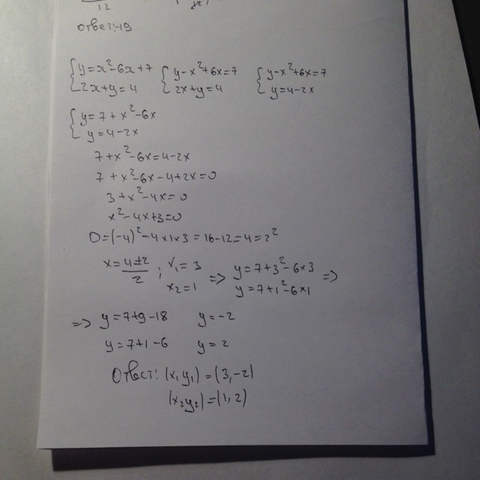 12
ответ:-19
{y=x²-6x+7 {y-x²+6x=7 {y-x²+6x=7
{2x+y=4 {2x+y=4 {y=4-2x
{y=7+x²-6x
{y=4-2x
7+x²-6x=4-2x
7+x²-6x-4+2x=0
3+x²-4x=0
x²-4x+3=0
D=(-4)²-4×1×3=16-12=4=2²
x=4±2/2; x₁=3 => y=7+3²-6×3 =>
x₂=1 y=7+1²-6×1
=> y=7+9-18 y=-2
y=7+1-6 y=2
Ответ: (x₁y₁)=(3,-2)
(x₂y₂)=(1,2)